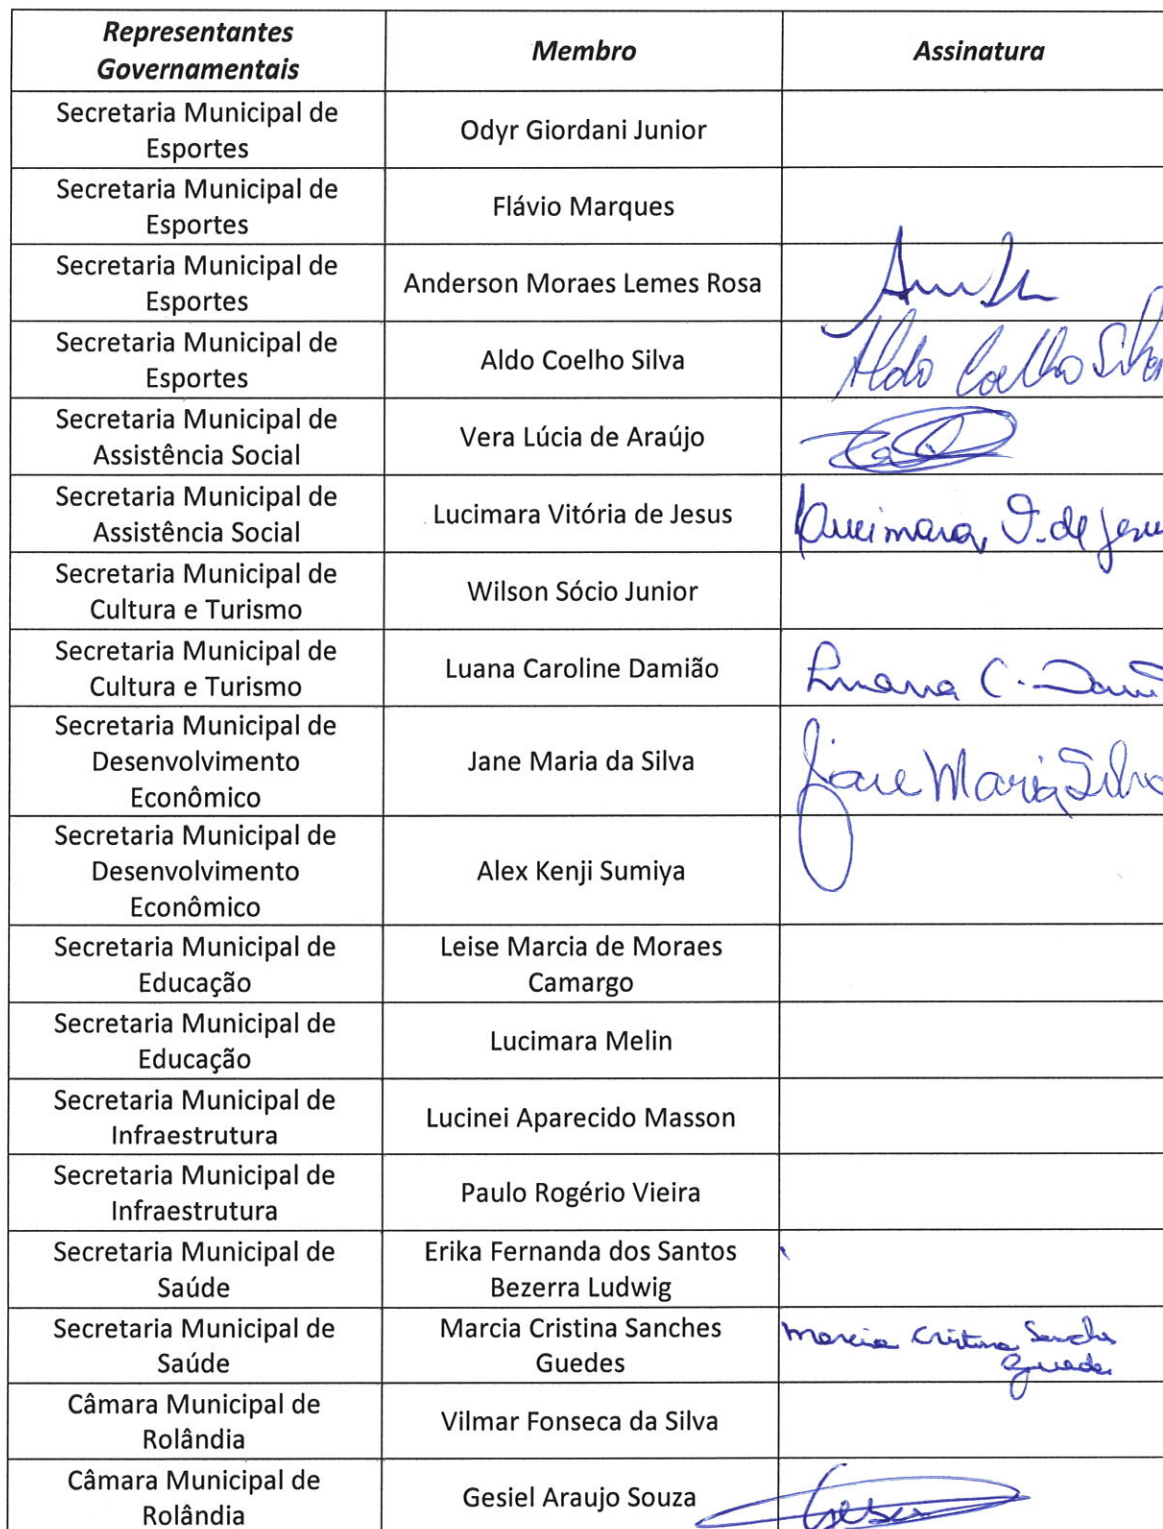 Representantes
Governamentais
Membro
Assinatura
Secretaria Municipal de
Esportes
Odyr Giordani Junior
Secretaria Municipal de
Esportes
Flávio Marques
Secretaria Municipal de
Esportes
Anderson Moraes Lemes Rosa
Secretaria Municipal de
Esportes
Aldo Coelho Silva
Aldo Coelho Silva
Secretaria Municipal de
Assistência Social
Vera Lúcia de Araújo
Secretaria Municipal de
Assistência Social
Lucimara Vitória de Jesus
Lucimara V. de Jesus
Secretaria Municipal de
Cultura e Turismo
Wilson Sócio Junior
Secretaria Municipal de
Cultura e Turismo
Luana Caroline Damião
Luana C. Dami
Secretaria Municipal de
Desenvolvimento
Econômico
Jane Maria da Silva
Jane Maria Silva
Secretaria Municipal de
Desenvolvimento
Econômico
Alex Kenji Sumiya
Secretaria Municipal de
Educação
Leise Marcia de Moraes
Camargo
Secretaria Municipal de
Educação
Lucimara Melin
Secretaria Municipal de
Infraestrutura
Lucinei Aparecido Masson
Secretaria Municipal de
Infraestrutura
Paulo Rogério Vieira
Secretaria Municipal de
Saúde
Erika Fernanda dos Santos
Bezerra Ludwig
Secretaria Municipal de
Saúde
Marcia Cristina Sanches
Guedes
Marcia Cristina Sanches
Guedes
Câmara Municipal de
Rolândia
Vilmar Fonseca da Silva
Câmara Municipal de
Rolândia
Gesiel Araujo Souza